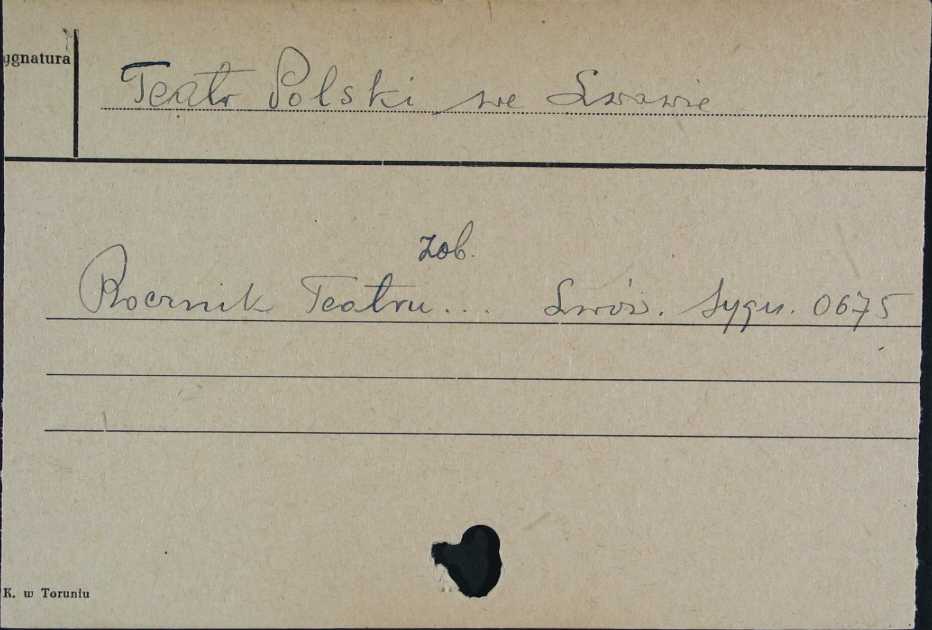 ygnatura
Teatr Polski we Lwowie
zob.
Rocznik Teatru... Lwów. Sygn. 0675
K. w Toruniu